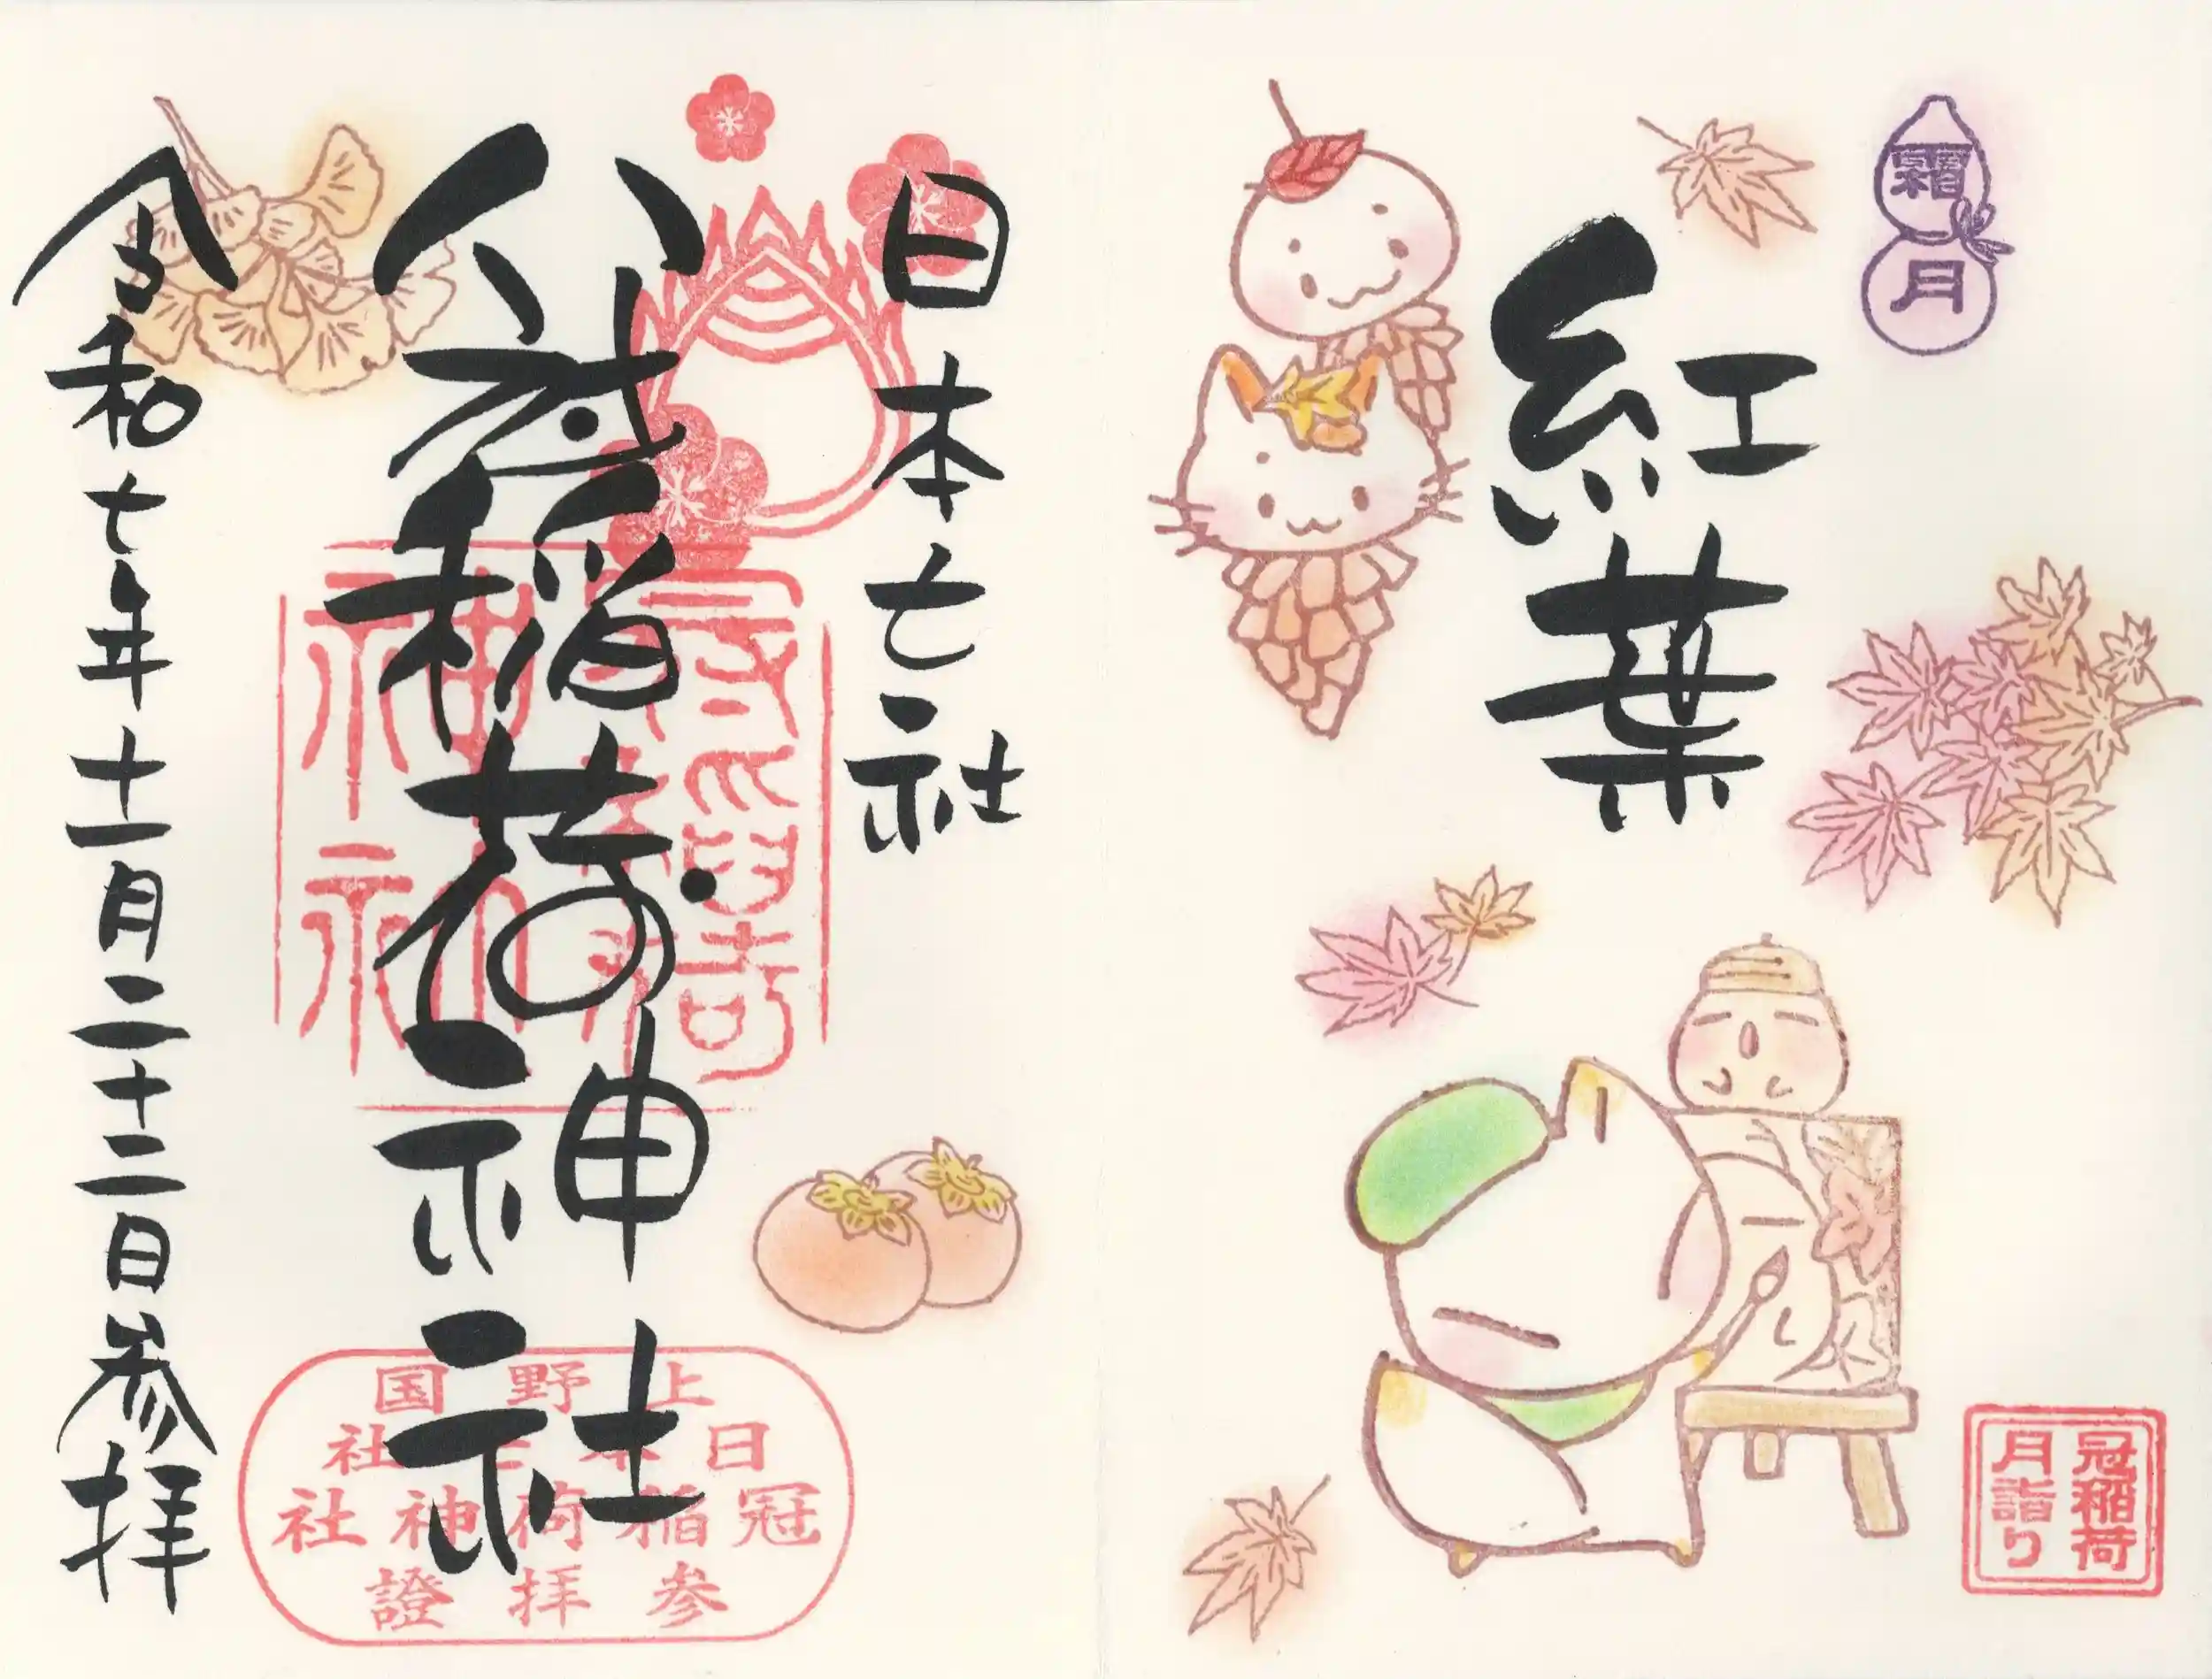 霜月
紅葉
冠稲荷
月詣り
日本七社
冠稲荷神社
令和七年十一月二十二日参拝
上野国
日本七社
冠稲荷神社
参拝證